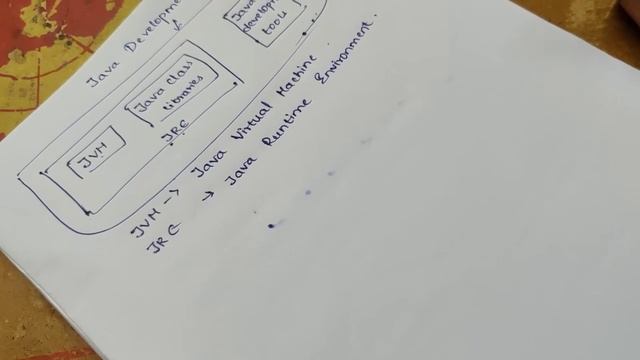 Java Developme
Java
developm
tools
Java class
libraries
JVM
JRE
JVM -> Java Virtual Machine.
JRE -> Java Runtime Environment.